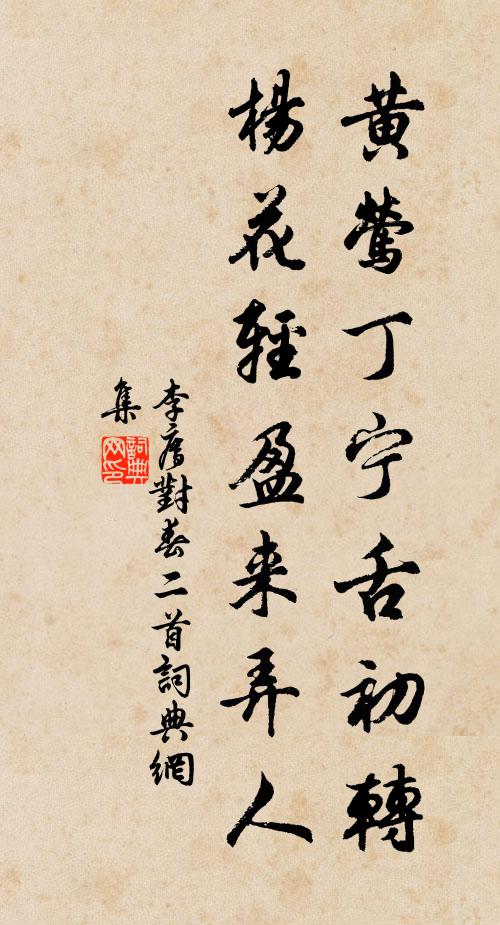 黄鶯丁宁舌初轉
楊花輕盈来弄人
李廌對春二首詞典網
集
詞典网印